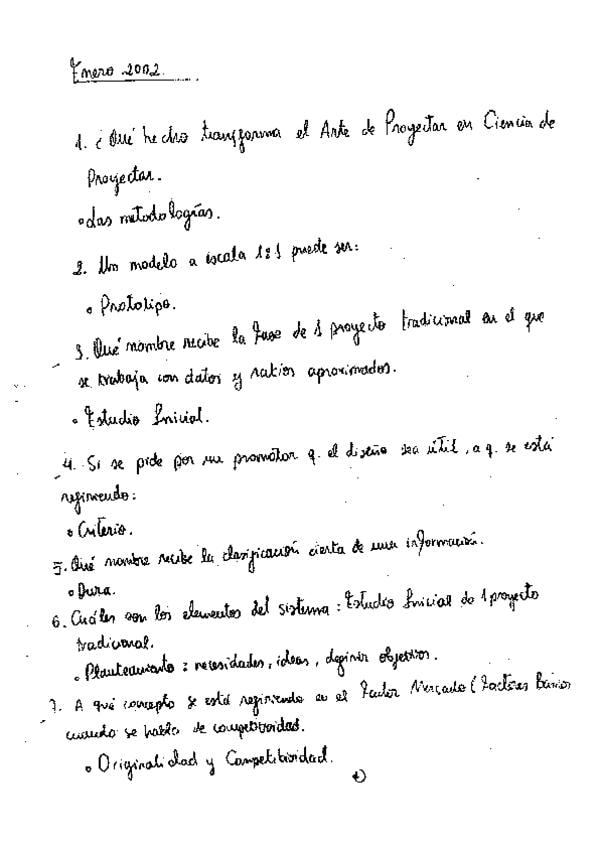 Enero 2002.
1. ¿Qué hecho transforma el Arte de Proyectar en Ciencia de
Proyectar.
• Las metodologías.
2. Un modelo a escala 1:1 puede ser:
• Prototipo.
3. Qué nombre recibe la Fase de 1 proyecto tradicional en el que
se trabaja con datos y ratios aproximados.
• Estudio Inicial.
4. Si se pide por un promotor q. el diseño sea útil, a q. se está
refiriendo:
• Criterio.
5. Qué nombre recibe la clasificación cierta de una información.
• Dura.
6. Cuáles son los elementos del sistema: Estudio Inicial de 1 proyecto
tradicional.
• Planteamiento: necesidades, ideas, definir objetivos.
7. A qué concepto se está refiriendo en el Factor Mercado (Factores Básicos
cuando se habla de competitividad.
• Originalidad y Competitividad.